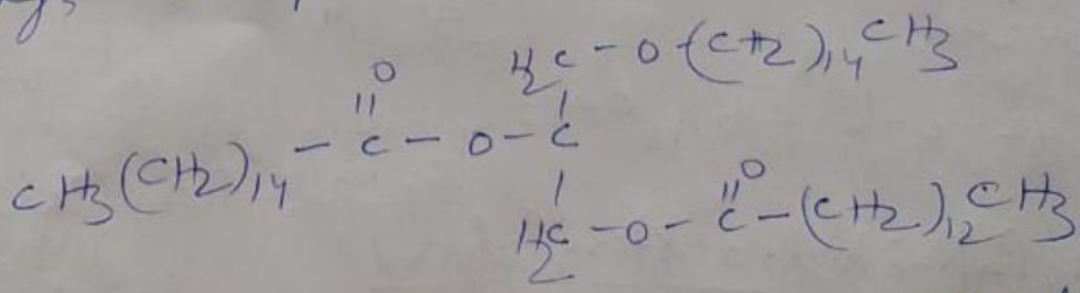 H2C - O (CH2)14 CH3
O
||
CH3(CH2)14 - C - O - C
O
||
H2C - O - C - (CH2)12 CH3